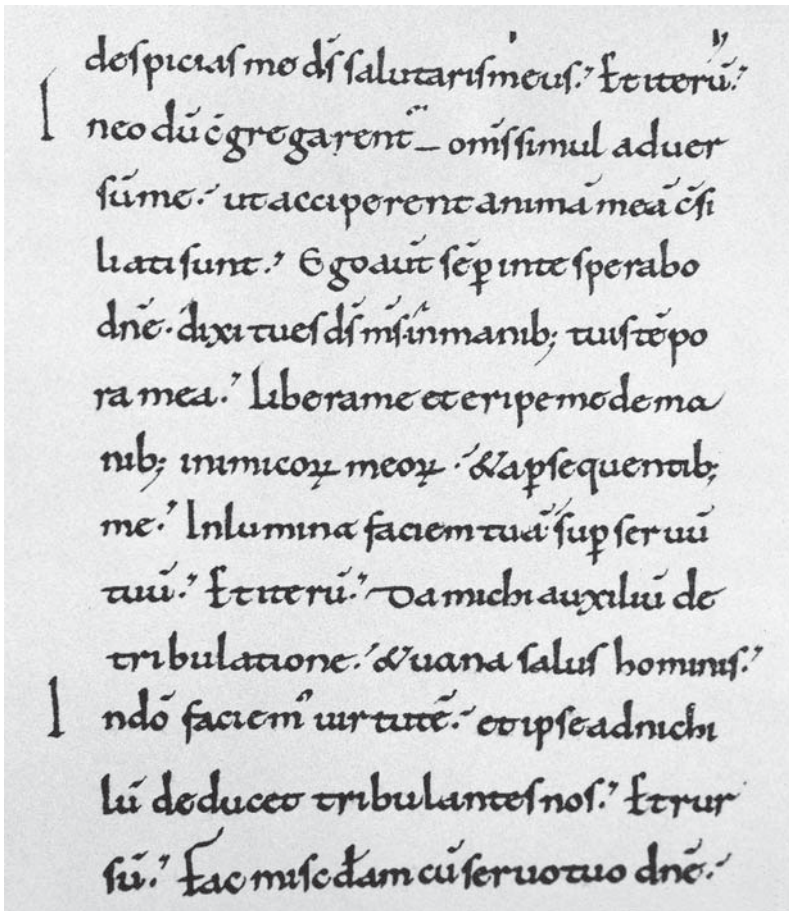 despicias me d̄s salutaris meus. Et iterū.
I neo dū c̄gregarent̄ om̄s simul aduer
sū me. ut acciperent animā meā c̄si
liati sunt. Ego aut̄ sēp̱ in te sperabo
dn̄e. dixi tu es d̄s m̄s. in manib; tuis tēpo
ra mea. Libera me et eripe me de ma
nib; inimicoꝝ meoꝝ. & a ꝑsequentib;
me. Inlumina faciem tuā sup̱ seruū
tuū. Et iterū. Da michi auxiliū de
tribulatione. & uana salus hominis.
I ndō faciem᾽ uirtutē. et ipse ad nichi
lū deducet tribulantes nos. Et rur
sū. Fac misc̄dam cū seruo tuo dn̄e.